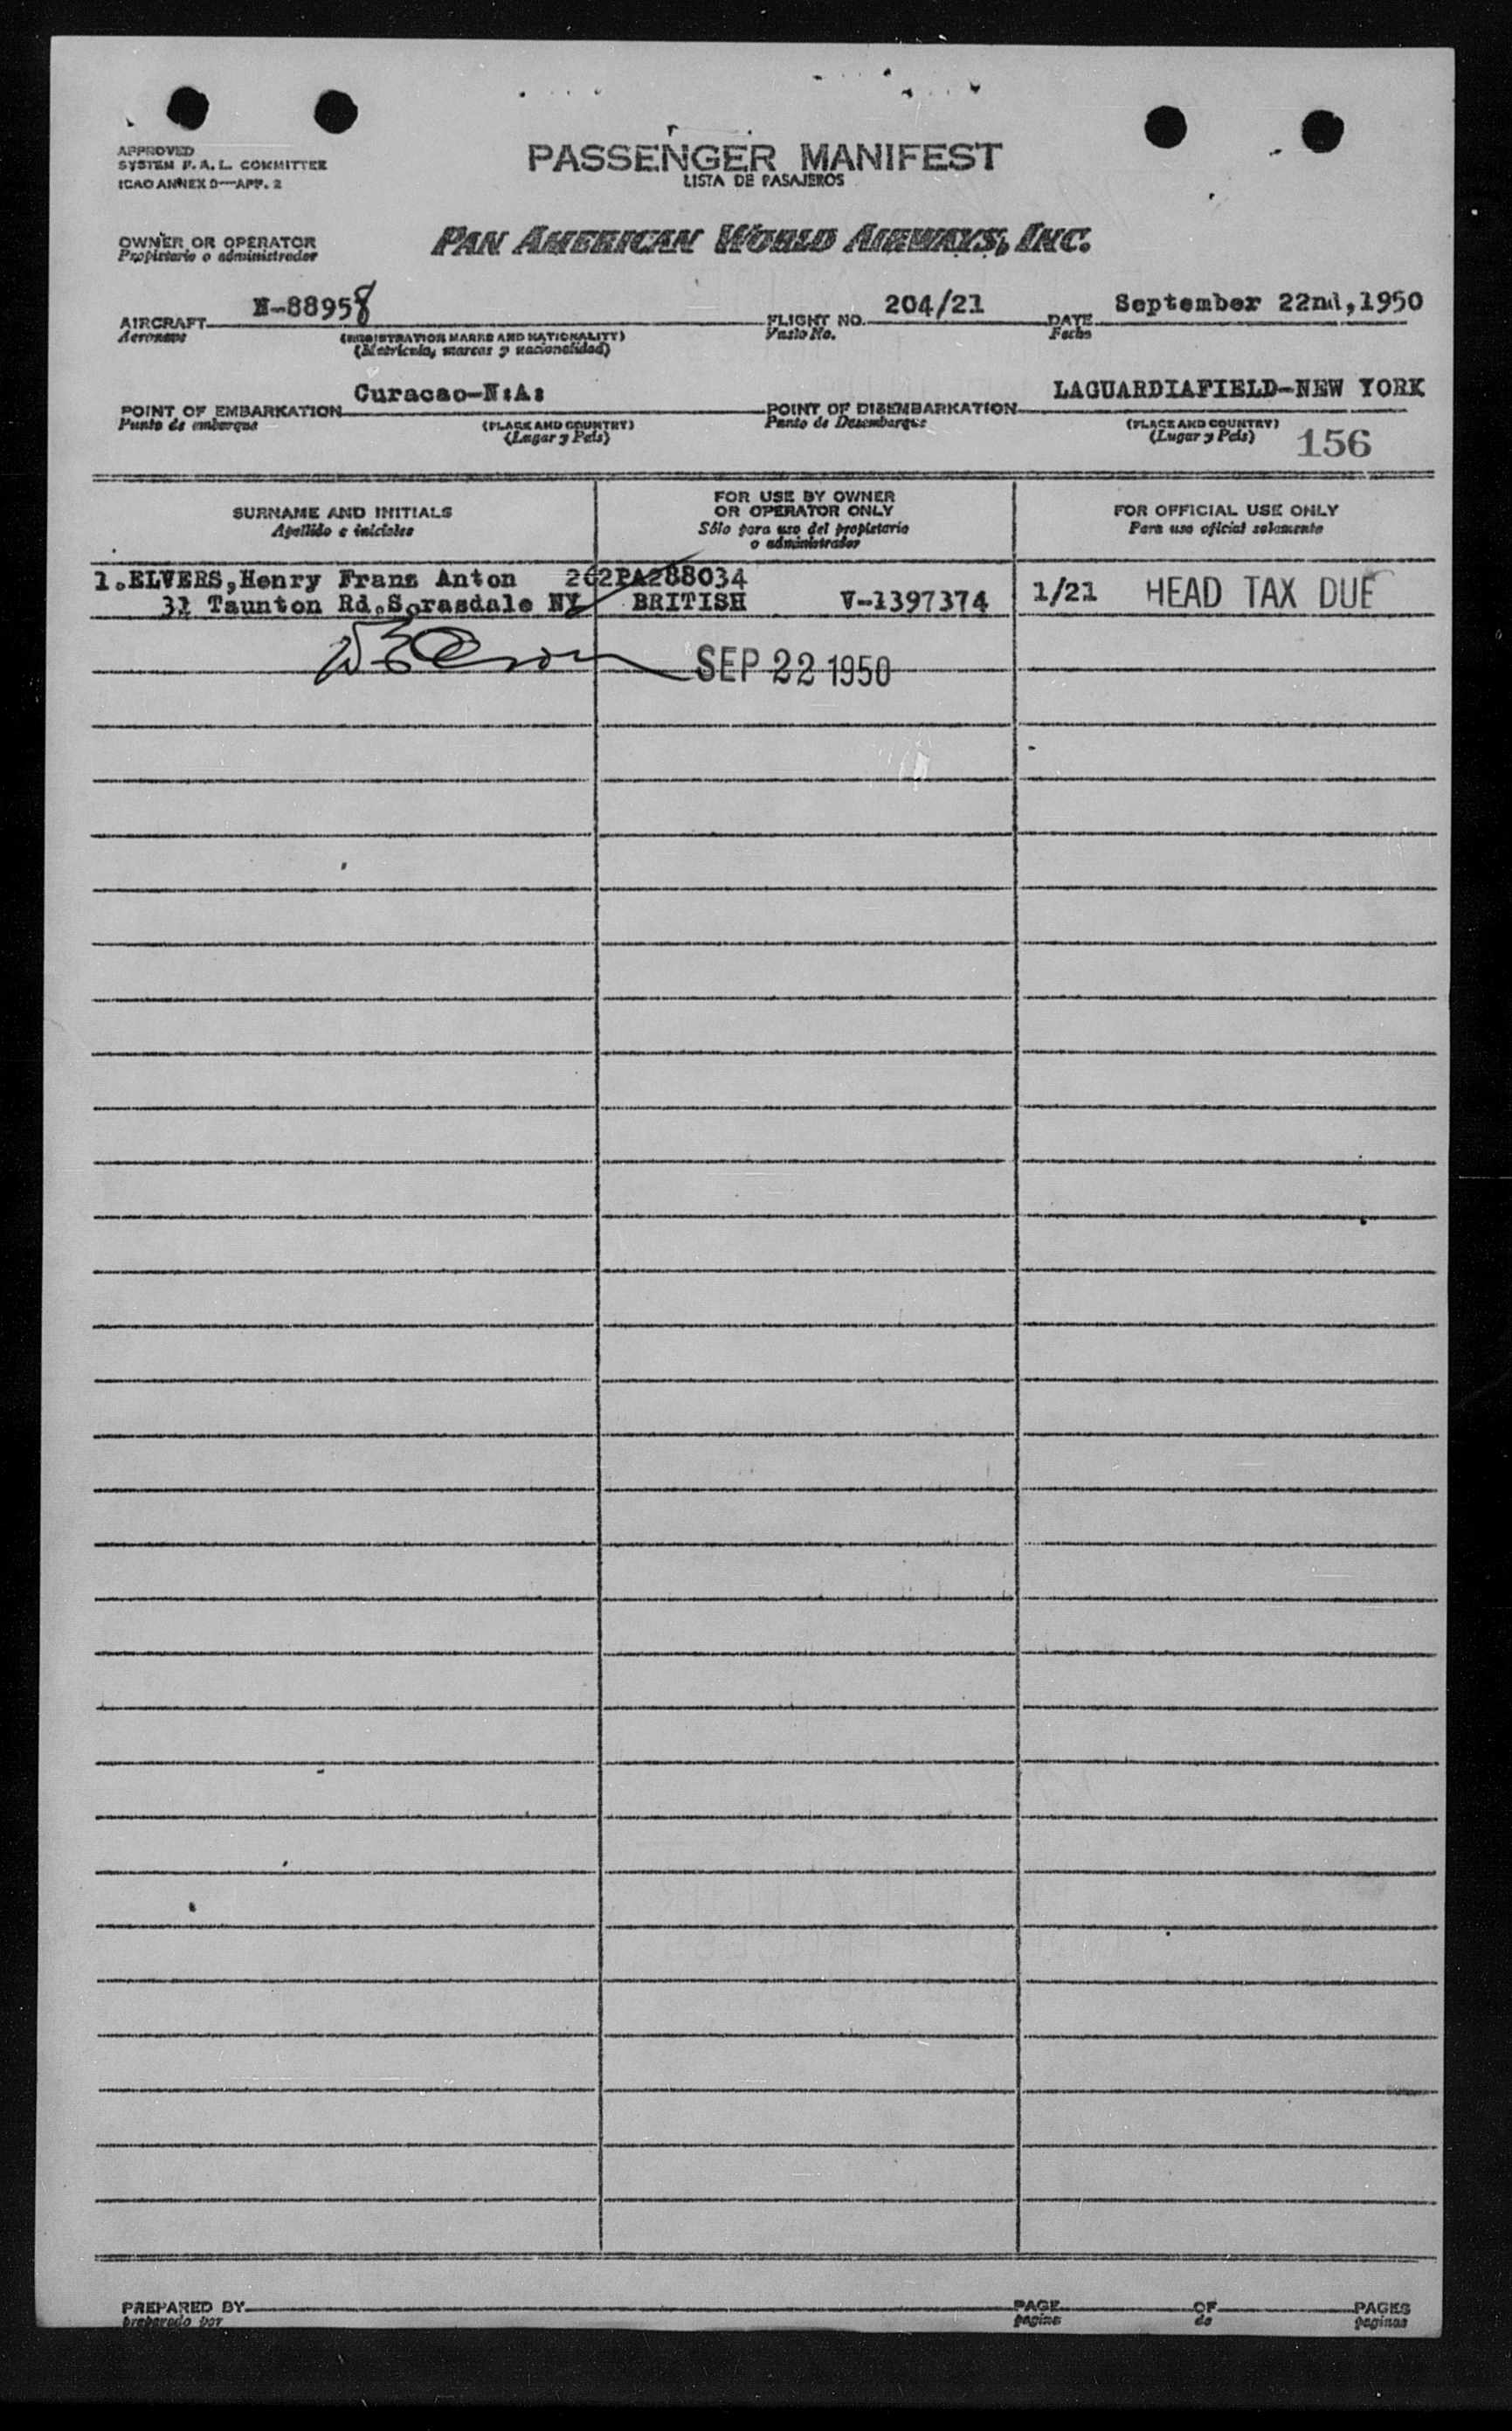 APPROVED
SYSTEM F.A.L. COMMITTEE
ICAO ANNEX 9—APP. 2
PASSENGER MANIFEST
LISTA DE PASAJEROS
OWNER OR OPERATOR
Propietario o administrador
PAN AMERICAN WORLD AIRWAYS, INC.
AIRCRAFT N-88958
Aeronave
(REGISTRATION MARKS AND NATIONALITY)
(Matrícula, marcas y nacionalidad)
FLIGHT NO. 204/21
Vuelo No.
DATE September 22nd,1950
Fecha
POINT OF EMBARKATION Curacao-N:A:
Punto de embarque
(PLACE AND COUNTRY)
(Lugar y País)
POINT OF DISEMBARKATION LAGUARDIAFIELD-NEW YORK
Punto de Desembarque
(PLACE AND COUNTRY)
(Lugar y País)
156
SURNAME AND INITIALS
Apellido e iniciales
FOR USE BY OWNER
OR OPERATOR ONLY
Sólo para uso del propietario
o administrador
FOR OFFICIAL USE ONLY
Para uso oficial solamente
1.ELVERS,Henry Franz Anton 262PA288034
31 Taunton Rd.Scrasdale NY BRITISH V-1397374 1/21 HEAD TAX DUE
SEP 22 1950
PREPARED BY
preparado por
PAGE OF PAGES
página de páginas